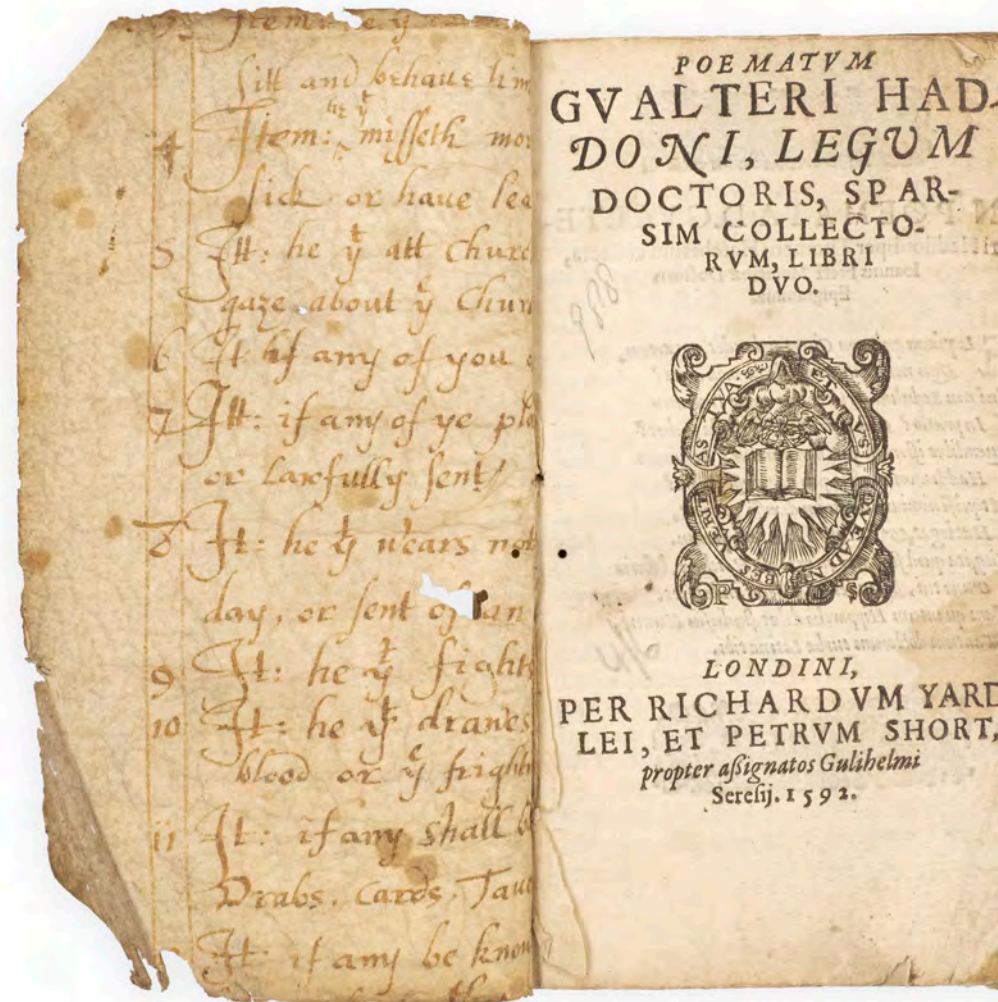 Item
sitt and behave him
4 Item: he yt misseth mor
sick or have lea
5 Itt: he yt att Churc
gaze about ye Chur
6 It: if any of you
7 Itt: if any of ye pla
or lawfully sent
8 It: he yt wears not
day, or sent of an
9 It: he yt fights
10 It: he yt drawes
blood or yt fright
11 It: if any shall b
Drabs, Cards, Tau
It: if any be know
POEMATVM
GVALTERI HAD-
DONI, LEGUM
DOCTORIS, SPAR-
SIM COLLECTO-
RVM, LIBRI
DVO.
988
VERITAS TVA ET VSQVE AD NVBES
P S
4/6
LONDINI,
PER RICHARDVM YARD
LEI, ET PETRVM SHORT,
propter aſsignatos Gulihelmi
Sereſij. 1592.